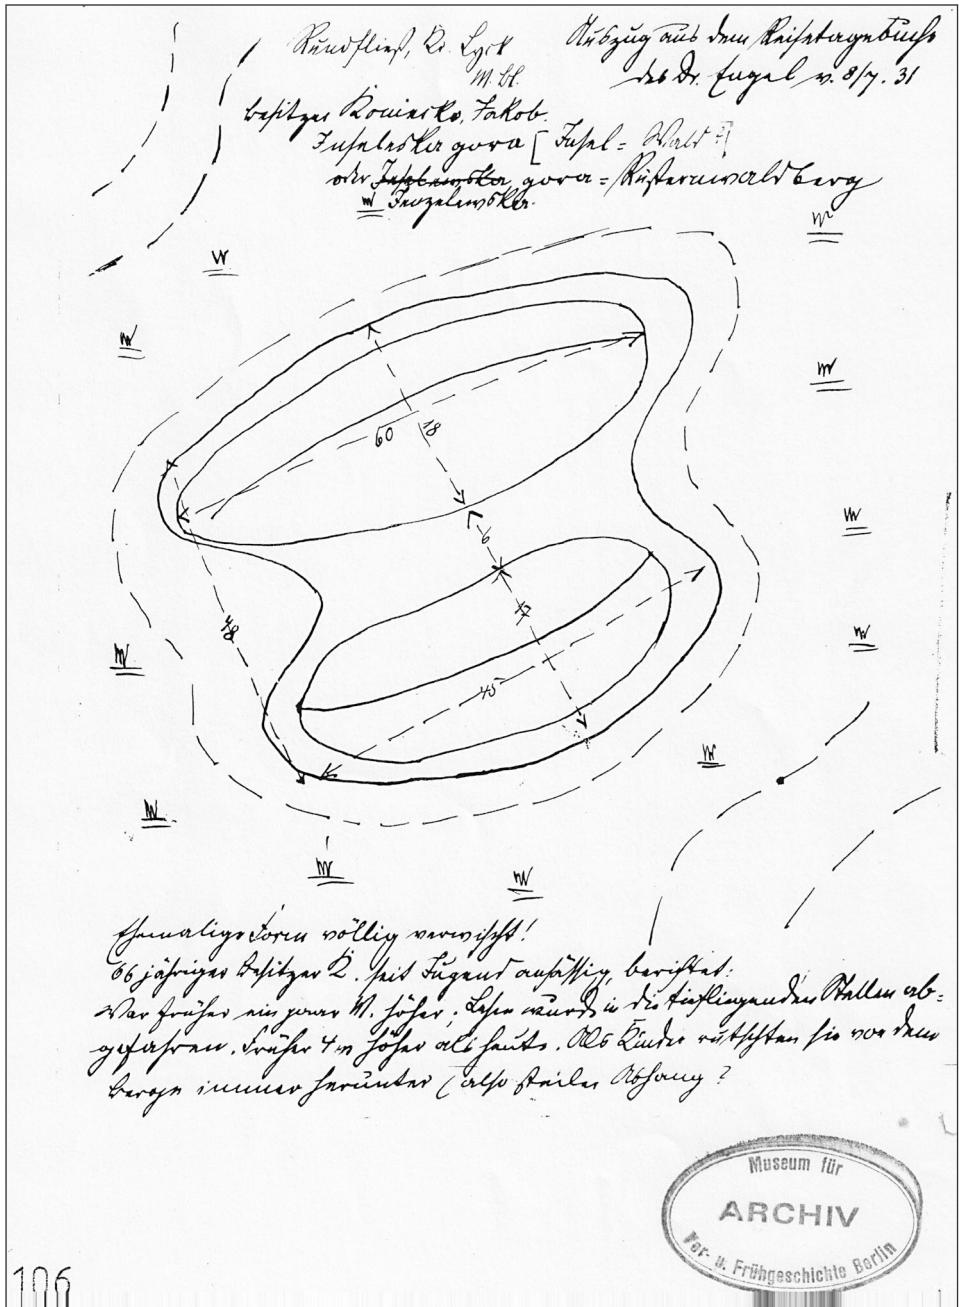 Rundfließ, Kr. Lyck
M. Bl.
Auszug aus dem Reisetagebuche
des Dr. Engel v. 8/7. 31
Besitzer Konietzko, Jakob.
gora [ Insel = Wald ?]
oder gora = Rüsternwaldberg
Jeszelewska.
60
18
6
17
48
45
Ehemalige Form völlig verwischt!
66 jähriger Besitzer K. seit Jugend ansässig, berichtet:
War früher ein paar M. höher; Lehm wurde in die tiefliegenden Stellen ab=
gefahren. Früher 4 m höher als heute. Als Kinder rutschten sie von dem
Berge immer herunter (also steiler Abhang?
Museum für
ARCHIV
Vor- u. Frühgeschichte Berlin
106